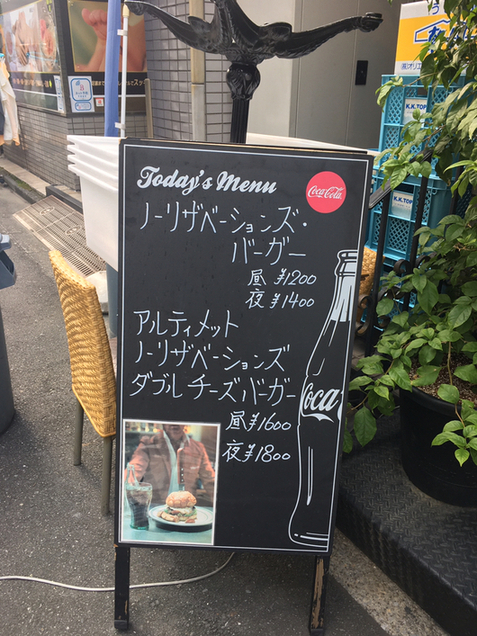 Today's Menu
Coca-Cola
ノーリザベーションズ・
バーガー
昼 ¥1200
夜 ¥1400
アルティメット
ノーリザベーションズ
ダブルチーズバーガー
昼¥1600
夜¥1800
Coca
K.K.TOP